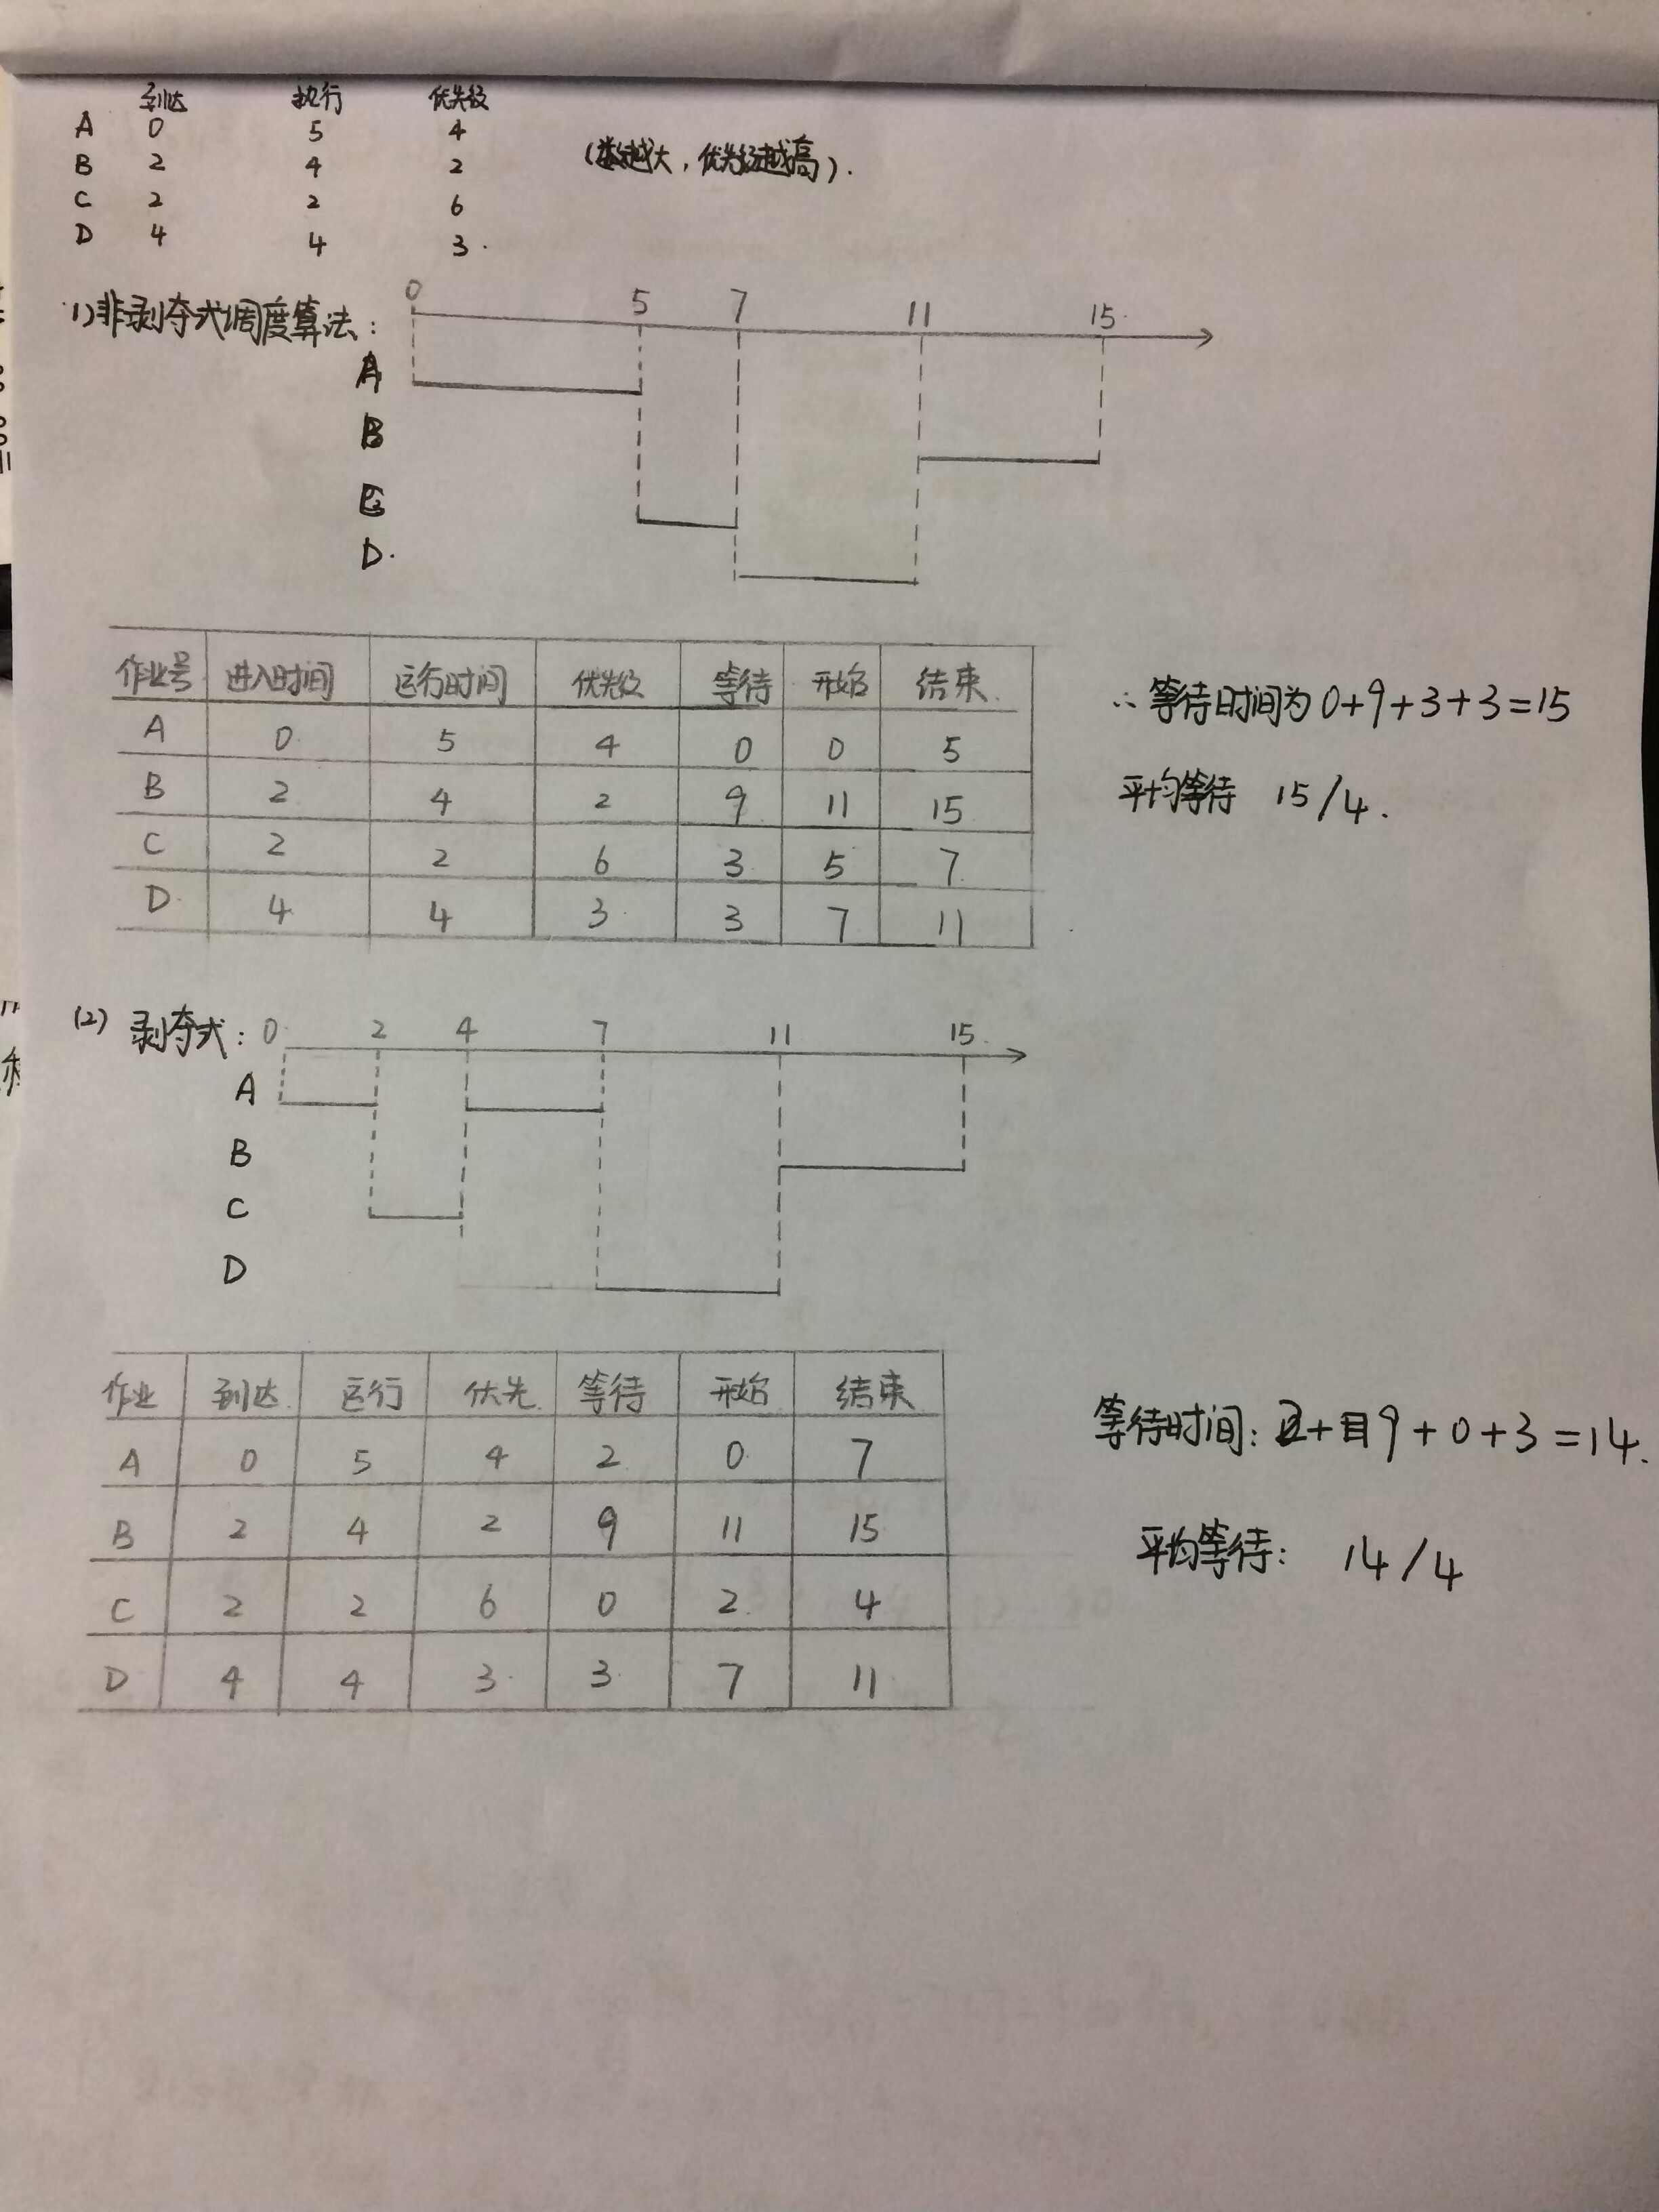 到达 执行 优先级
A 0 5 4
B 2 4 2 (数越大，优先级越高).
C 2 2 6
D 4 4 3.
1)非剥夺式调度算法：
0 5 7 11 15
A
B
C
D.
作业号 进入时间 运行时间 优先级 等待 开始 结束
A 0 5 4 0 0 5
B 2 4 2 9 11 15
C 2 2 6 3 5 7
D 4 4 3 3 7 11
∴等待时间为0+9+3+3=15
平均等待 15/4.
(2) 剥夺式： 0 2 4 7 11 15
A
B
C
D
作业 到达 运行 优先 等待 开始 结束
A 0 5 4 2 0 7
B 2 4 2 9 11 15
C 2 2 6 0 2 4
D 4 4 3 3 7 11
等待时间：2+9+0+3=14.
平均等待： 14/4